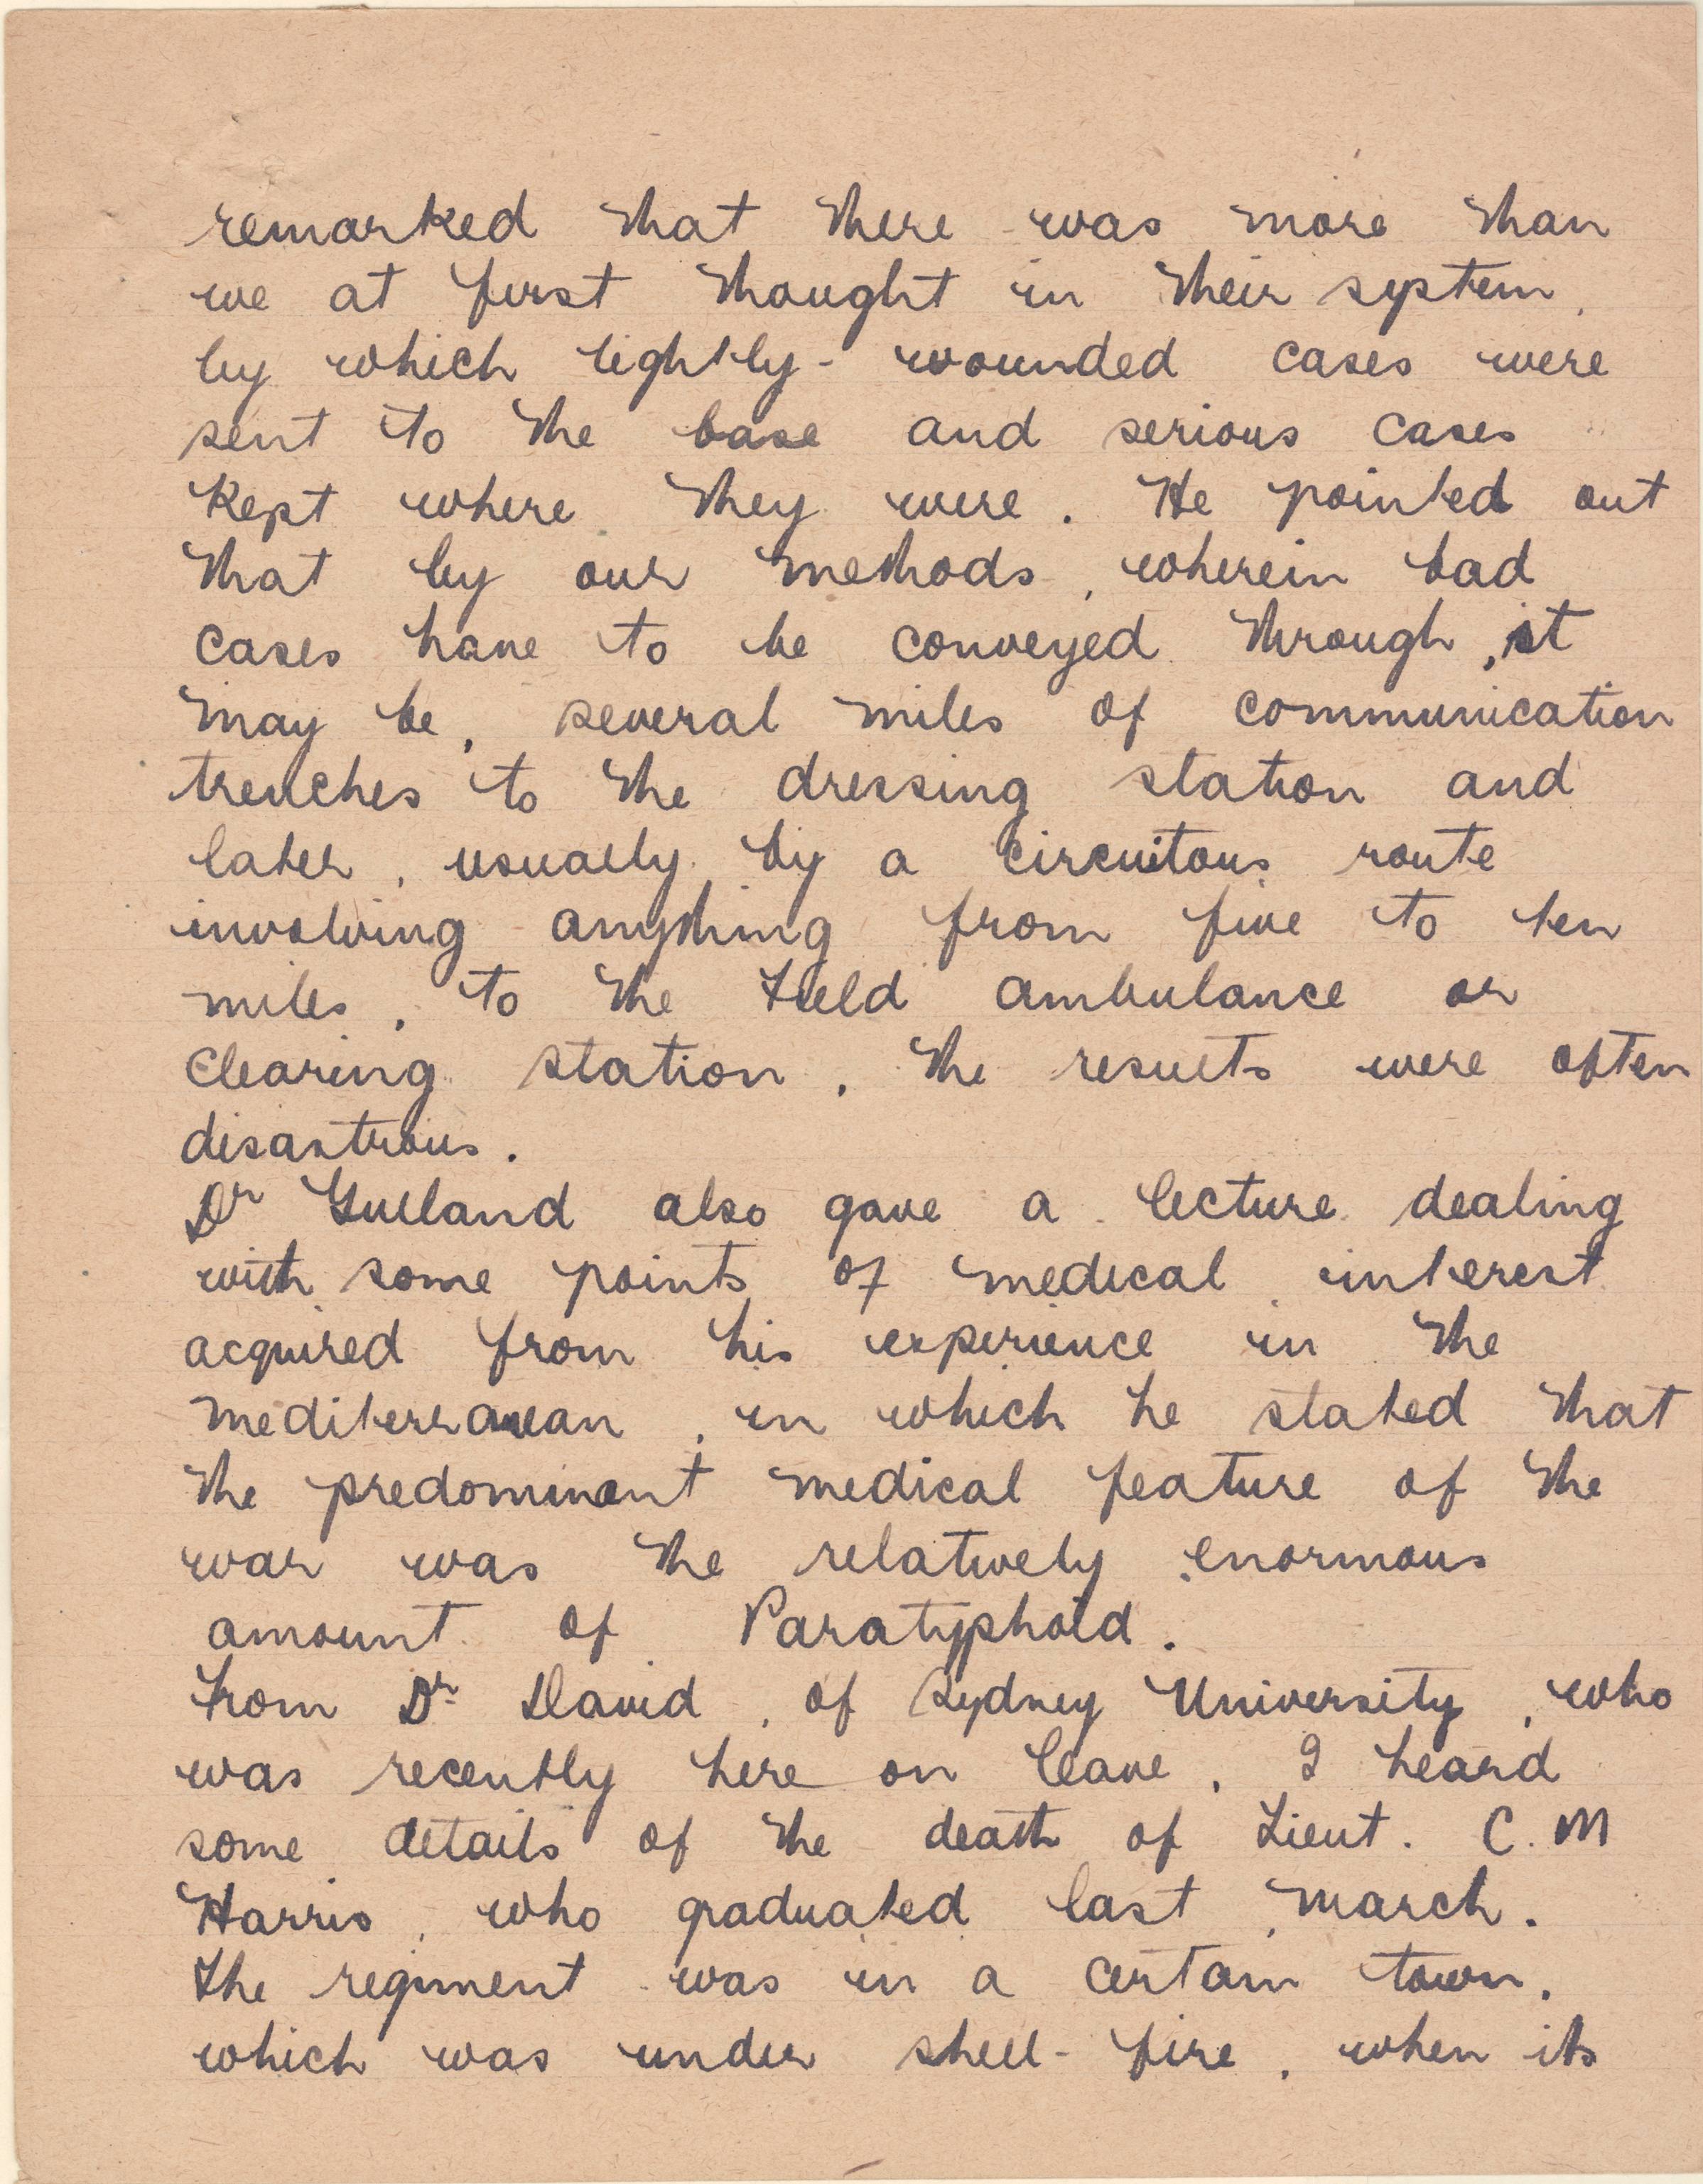 remarked that there was more than
we at first thought in their system,
by which lightly-wounded cases were
sent to the base and serious cases
kept where they were. He pointed out
that by our methods, wherein bad
cases have to be conveyed through, it
may be, several miles of communication
trenches to the dressing station and
later, usually by a circuitous route
involving anything from five to ten
miles, to the Field ambulance or
clearing station, the results were often
disastrous.
Dr Gulland also gave a lecture dealing
with some points of medical interest
acquired from his experience in the
Mediterranean, in which he stated that
the predominant medical feature of the
war was the relatively enormous
amount of Paratyphoid.
From Dr David, of Sydney University, who
was recently here on leave, I heard
some details of the death of Lieut. C. M
Harris, who graduated last March.
The regiment was in a certain town,
which was under shell-fire, when its